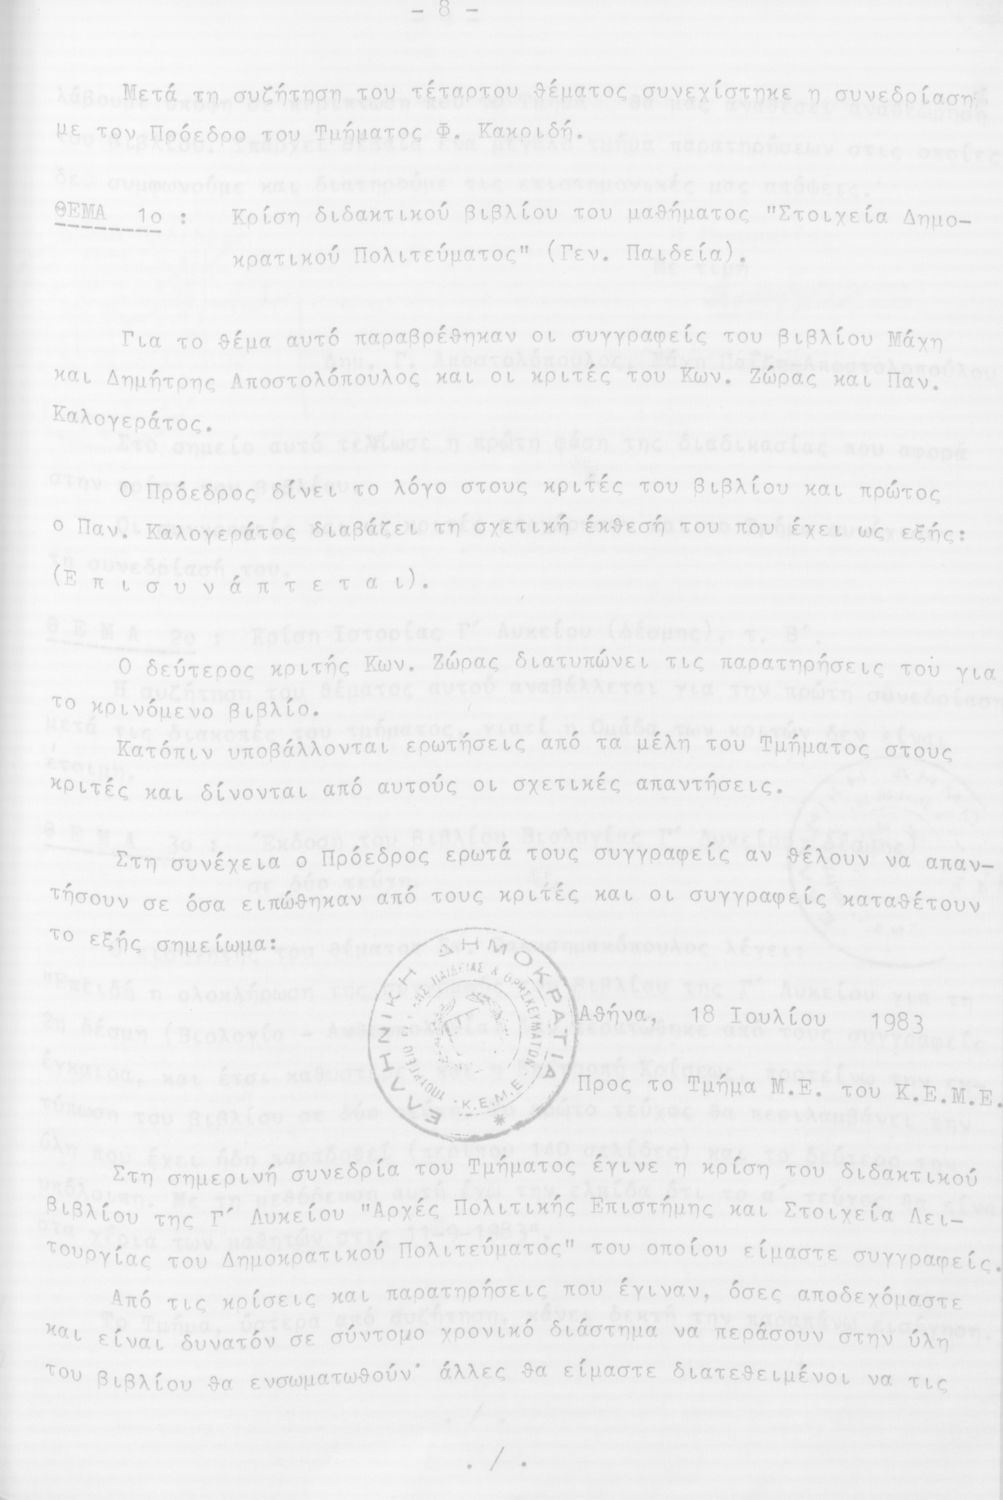 - 8 -
Μετά τη συζήτηση του τέταρτου θέματος συνεχίστηκε η συνεδρίαση
με τον Πρόεδρο του Τμήματος Φ. Κακριδή.
ΘΕΜΑ 1ο : Κρίση διδακτικού βιβλίου του μαθήματος "Στοιχεία Δημο-
κρατικού Πολιτεύματος" (Γεν. Παιδεία).
Για το θέμα αυτό παραβρέθηκαν οι συγγραφείς του βιβλίου Μάχη
και Δημήτρης Αποστολόπουλος και οι κριτές του Κων. Ζώρας και Παν.
Καλογεράτος.
Ο Πρόεδρος δίνει το λόγο στους κριτές του βιβλίου και πρώτος
ο Παν. Καλογεράτος διαβάζει τη σχετική έκθεσή του που έχει ως εξής:
(Ε π ι σ υ ν ά π τ ε τ α ι).
Ο δεύτερος κριτής Κων. Ζώρας διατυπώνει τις παρατηρήσεις του για
το κρινόμενο βιβλίο.
Κατόπιν υποβάλλονται ερωτήσεις από τα μέλη του Τμήματος στους
κριτές και δίνονται από αυτούς οι σχετικές απαντήσεις.
Στη συνέχεια ο Πρόεδρος ερωτά τους συγγραφείς αν θέλουν να απαν-
τήσουν σε όσα ειπώθηκαν από τους κριτές και οι συγγραφείς καταθέτουν
το εξής σημείωμα:
ΕΛΛΗΝΙΚΗ ΔΗΜΟΚΡΑΤΙΑ
ΥΠΟΥΡΓΕΙΟ ΠΑΙΔΕΙΑΣ & ΘΡΗΣΚΕΥΜΑΤΩΝ
Κ.Ε.Μ.Ε.
Αθήνα, 18 Ιουλίου 1983
Προς το Τμήμα Μ.Ε. του Κ.Ε.Μ.Ε.
Στη σημερινή συνεδρία του Τμήματος έγινε η κρίση του διδακτικού
βιβλίου της Γ΄ Λυκείου "Αρχές Πολιτικής Επιστήμης και Στοιχεία Λει-
τουργίας του Δημοκρατικού Πολιτεύματος" του οποίου είμαστε συγγραφείς.
Από τις κρίσεις και παρατηρήσεις που έγιναν, όσες αποδεχόμαστε
και είναι δυνατόν σε σύντομο χρονικό διάστημα να περάσουν στην ύλη
του βιβλίου θα ενσωματωθούν· άλλες θα είμαστε διατεθειμένοι να τις
. / .